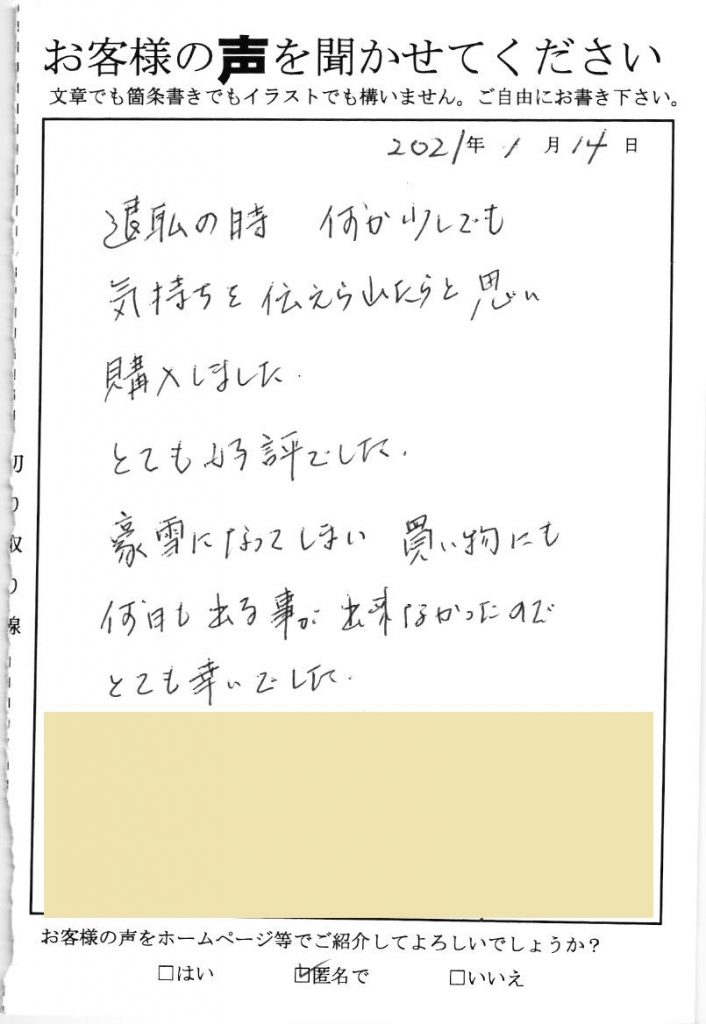 お客様の声を聞かせてください
文章でも箇条書きでもイラストでも構いません。ご自由にお書き下さい。
2021年 1月 14日
退職の時 何か少しでも
気持ちを伝えられたらと思い
購入しました.
とても好評でした.
豪雪になってしまい 買い物にも
何日も出る事が出来なかったので
とても幸いでした.
切り取り線
お客様の声をホームページ等でご紹介してよろしいでしょうか？
□はい ☑匿名で □いいえ